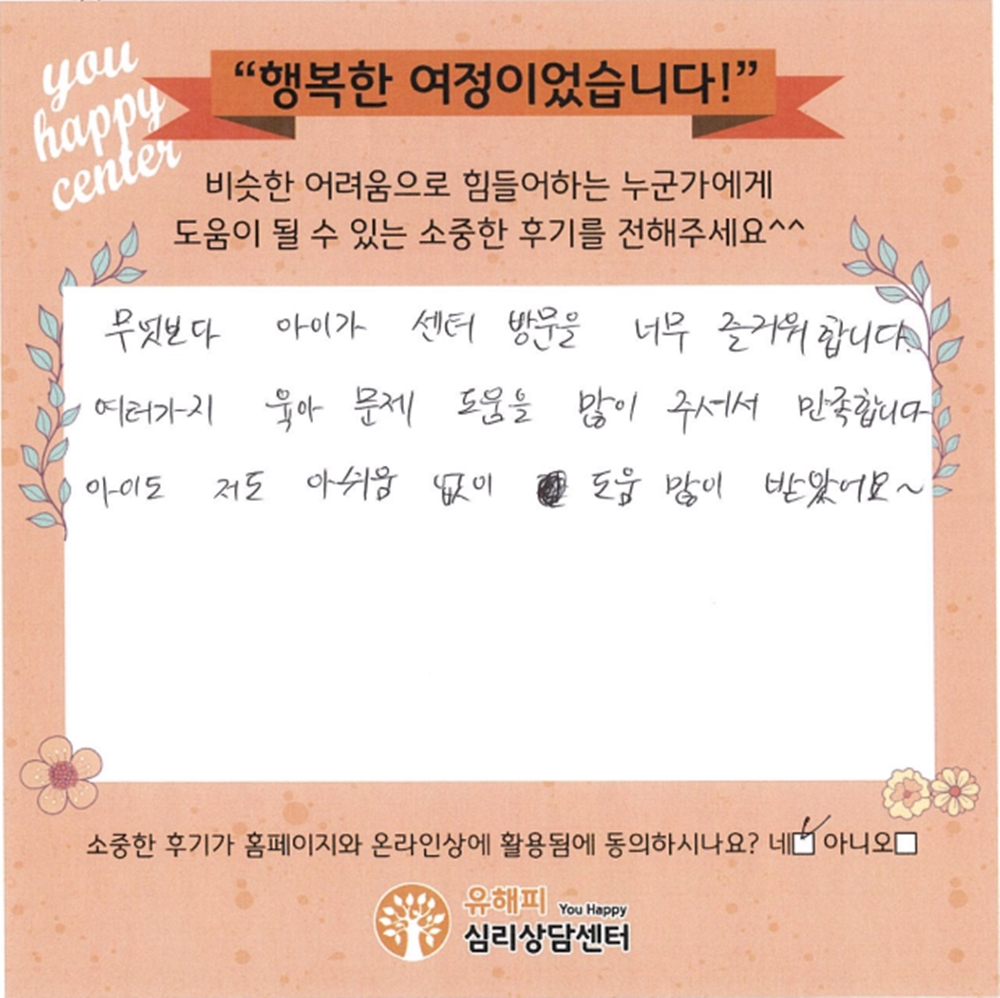 you
happy
center
“행복한 여정이었습니다!”
비슷한 어려움으로 힘들어하는 누군가에게
도움이 될 수 있는 소중한 후기를 전해주세요^^
무엇보다 아이가 센터 방문을 너무 즐거워 합니다.
여러가지 육아 문제 도움을 많이 주셔서 만족합니다
아이도 저도 아쉬움 없이 도움 많이 받았어요~
소중한 후기가 홈페이지와 온라인상에 활용됨에 동의하시나요? 네☑ 아니오☐
유해피 You Happy
심리상담센터